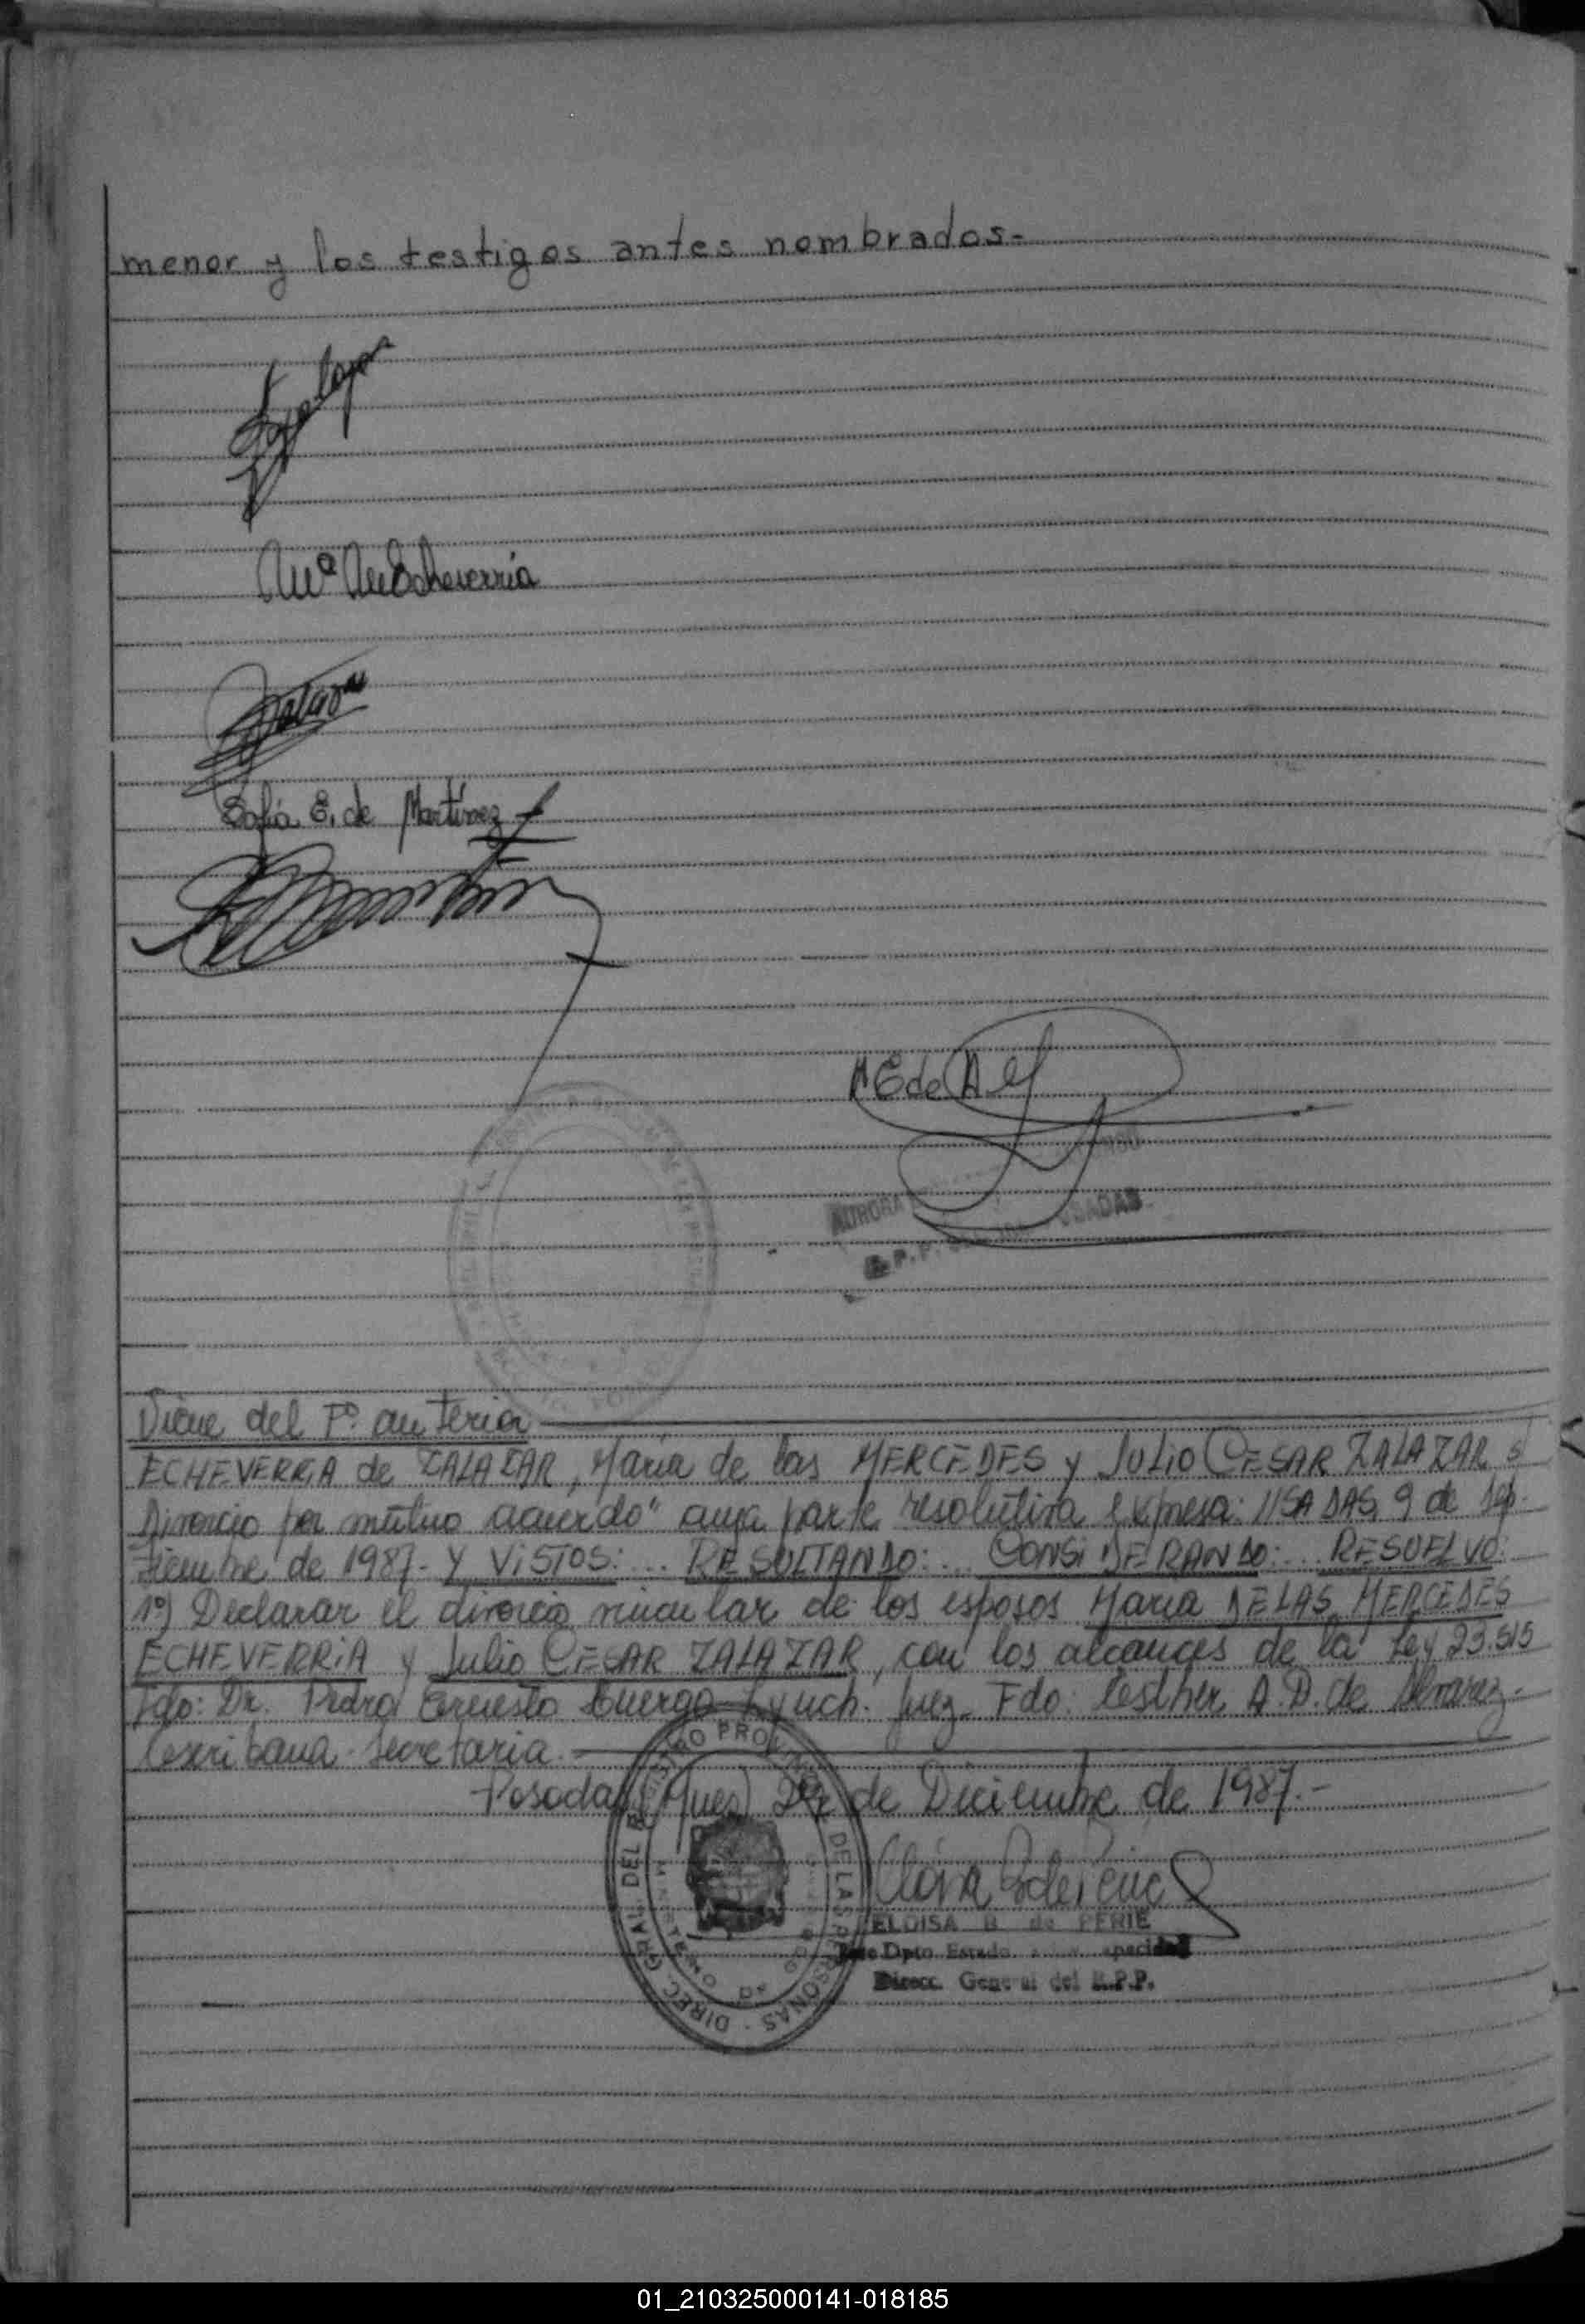 menor y los testigos antes nombrados.-
Mª M Echeverría
Sofía E. de Martínez
M E de A
AURORA
Viene del Fº anterior
ECHEVERRIA de ZALAZAR, María de las MERCEDES y Julio CESAR ZALAZAR s/
Divorcio por mutuo acuerdo" cuya parte resolutiva expresa: //SADAS, 9 de Sep-
tiembre de 1987.- Y VISTOS: ... RESULTANDO: ... CONSIDERANDO: ... RESUELVO:
1º) Declarar el divorcio vincular de los esposos María DE LAS MERCEDES
ECHEVERRIA y Julio CESAR ZALAZAR, con los alcances de la Ley 23.515
Fdo: Dr. Pedro Ernesto Cuergo Lynch. Juez. Fdo: Esther A.D. de Alvarez.-
Escribana - Secretaria.-
Posadas (Mnes) de Diciembre de 1987.-
ELOISA B de PERIE
Dpto. Estado
Direcc. General del R.P.P.
DIREC. GRAL. DEL REGISTRO PROVINCIAL DE LAS PERSONAS
01_210325000141-018185